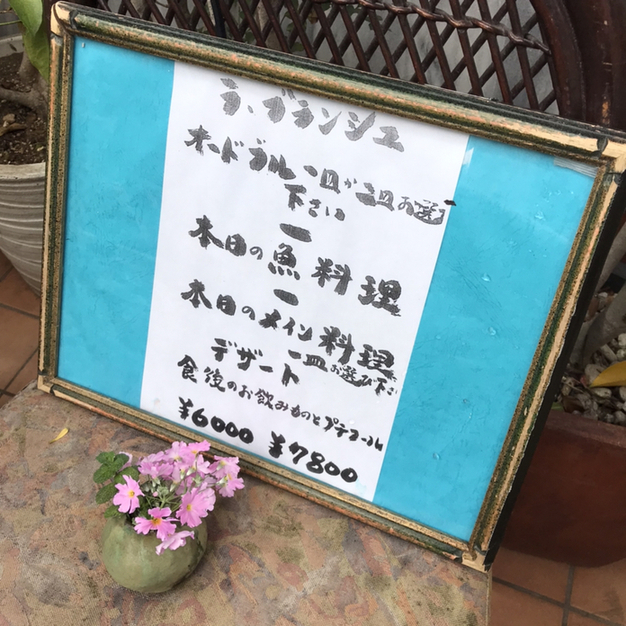 ラ、ブランシュ
オードブル一皿か二皿お選び
下さい
ー
本日の魚料理
ー
本日のメイン料理
デザート 一皿お選び下さい
食後のお飲みものとプチフール
¥6000 ¥7800